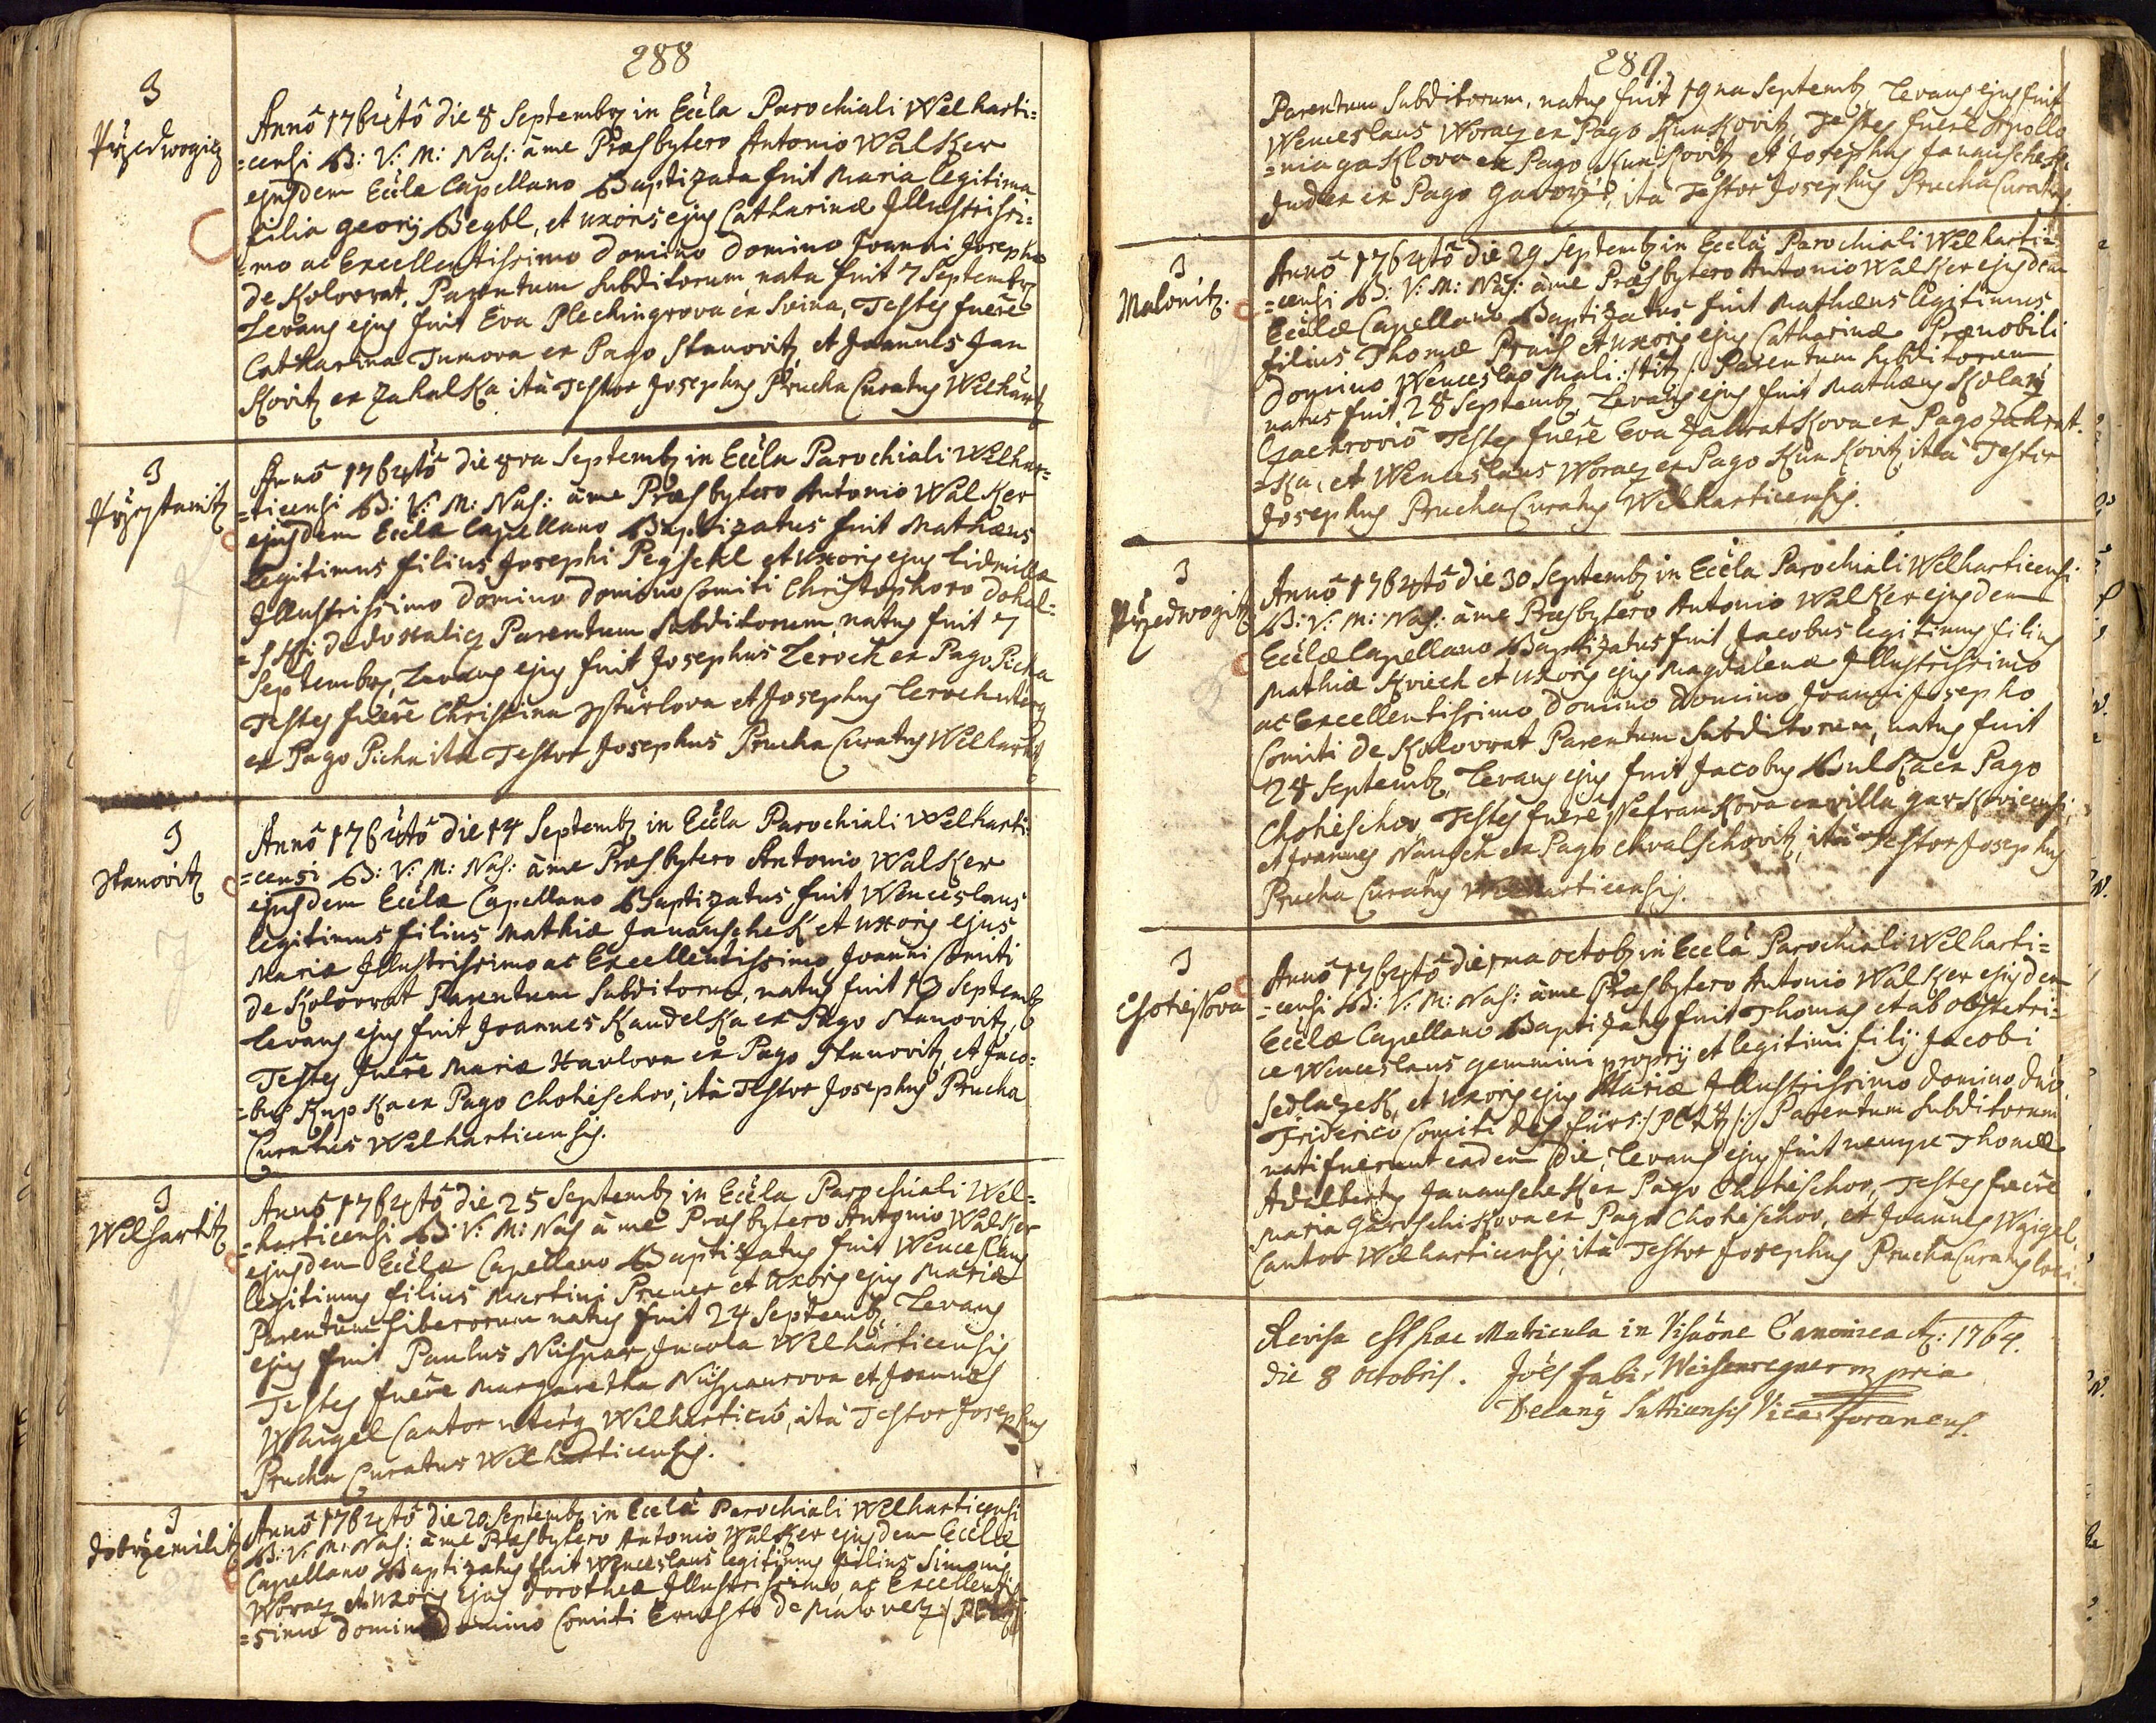 288
3
Przedwogicz
Annô 1764tô die 8 Septembr in Eccla Parochiali Welharti=
=censi B: V: M: Nas: à me Præsbytero Antonio Walker
ejusdem Eccłæ Capellano Baptizata fuit Maria legitima
filia Georij Beybl, et uxoris ejus Catharinæ Illustrissi=
=mo ac Excellentissimo Domino Domino Joanni Josepho
de Kolovrat, Parentum Subditorum, nata fuit 7 Septembr
Levans ejus fuit Eva Plechingrova ex Svina, Testes fuêre
Catharina Tumova ex Pago Stanovitz et Joannes Jan
Kovitz ex Zahalka ità Testor Josephus Prucha Curatus Welhart
3
Anno 1764tô die 8va Septemb in Eccla Parochiali Welhar=
=ticensi B: V: M: Nas: à me Præsbytero Antonio Walker
ejusdem Ecclæ Capellano Baptizatus fuit Mathæus
legitimus filius Josephi Pegschl et uxoris ejus Lidmillæ
Illustrissimo Domino Domino Comiti Christophoro Dohal=
=sski de Dohalicz Parentum Subditorum, natus fuit 7
Septembr, Levans ejus fuit Josephus Leroch ex Pago Picha
Testes fuêre Christina et Josephus Leroch uterq
ex Pago Picha ità Testor Josephus Prucha Curatus Welhart
3
Stanovitz
Annô 1764tô die 14 Septemb in Eccla Parochiali Welharti
=censi B: V: M: Nas: à me Præsbytero Antonio Walker
ejusdem Ecclæ Capellano Baptizatus fuit Wenceslaus
legitimus filius Mathiæ Janauschek et uxoris ejus
Mariæ Illustrissimo ac Excellentissimo Joanni Comiti
de Kolovrat Parentum Subditorum, natus fuit 13 Septemb
Levans ejus fuit Joannes Kandelka ex Pago Stanovitz,
Testes fuêre Maria Havlova ex Pago Stanovitz, et Jaco=
=bus Kupka ex Pago Chotieschov, ità Testor Josephus Prucha
Curatus Welharticensis.
3
Welhartitz
Annô 1764tô die 25 Septemb in Eccla Parochiali Wel=
=harticensi B: V: M: Nas à me Præsbytero Antonio Walker
ejusdem Ecclæ Capellano Baptizatus fuit Wenceslaus
legitimus filius Martini Pruner et uxoris ejus Mariæ
Parentum Liberorum natus fuit 24 Septemb, Levans
ejus fuit Paulus Nuspar Incola Welharticensis
Testes fuêre Margaretha Nuspaurova et Joannes
Waigel Cantor uterq Welharticio, ità Testor Josephus
Prucha Curatus Welharticensis.
3
Dobrzemilitz
Annô 1764tô die 20 Septemb in Eccla Parochiali Welharticensi
B: V: M: Nas: à me Præsbytero Antonio Walker ejusdem Ecclæ
Capellano Baptizatus fuit Wenceslaus legitimus filius Simonis
Woracz et uxoris ejus Dorotheæ Illustrissimo, ac Excellentis
=simo Domino Domino Comiti Ernesto de Malovetz
289
Parentum Subditorum, natus fuit 19na Septemb Levans ejus fuit
Wenceslaus Woracz ex Pago Kunkovitz, Testes fuêre Apollo
=nia ex Pago Kunkovitz et Josephus Janauschek
Judex ex Pago ità Testor Josephus Prucha Curatus
3
Malonitz.
Annô 1764tô die 29 Septemb in Eccla Parochiali Welharti=
=censi B: V: M: Nas: à me Præsbytero Antonio Walker ejusdem
Ecclæ Capellano Baptizatus fuit Mathæus legitimus
filius Thomæ et uxoris ejus Catharinæ Prænobili
Domino Wenceslao Mali :/tit/: Parentum Subditorum
natus fuit 28 Septemb, Levans ejus fuit Mathæus Kolarz
Testes fuêre Eva Zahratkova ex Pago Zahrat.
=ka, et Wenceslaus Woracz ex Pago Kunkovitz, ità Testor
Josephus Prucha Curatus Welharticensis.
3
Przedwogitz
Annô 1764tô die 30 Septemb in Eccla Parochiali Welharticensi
B: V: M: Nas: à me Præsbytero Antonio Walker ejusdem
Ecclæ Capellano Baptizatus fuit Jacobus legitimus filius
Mathiæ Kviech et uxoris ejus Magdalenæ Illustrissimo
ac Excellentissimo Domino Domino Joanni Josepho
Comiti de Kolovrat Parentum Subditorum, natus fuit
28 Septemb, Levans ejus fuit Jacobus Bulka ex Pago
Chotieschov, Testes fuêre ex villa
et Joannes Nausch ex Pago Chvalschovitz, ità Testor Josephus
Prucha Curatus Welharticensis.
3
Chotiessova
Annô 1764tô die 1ma Octob in Eccla Parochiali Welharti=
=censi B: V: M: Nas: à me Præsbytero Antonio Walker ejusdem
Ecclæ Capellano Baptizatus fuit Thomas et ab obstetri=
=ce Wenceslaus gemmini proprij et legitimi filij Jacobi
Sedlaczek, et uxoris ejus Mariæ Illustrissimo Domino Dno
Friderico Comiti des Fürs: Parentum Subditorum
nati fuerunt eadem Die, Levans ejus fuit nempe Thomæ
Adalbertus Janauschek ex Pago Chotieschov, Testes fuêre
Maria ex Pago Chotieschov, et Joannes Waigel
Cantor Welharticensis, ità Testor Josephus Prucha Curatus loci.
Revisa est hæc Matricula in Visaône Canonica A: 1764.
die 8 Octobris. Joës Fabi: Weisenregner mpria
Decany Sutticensis Vica: foraneus.